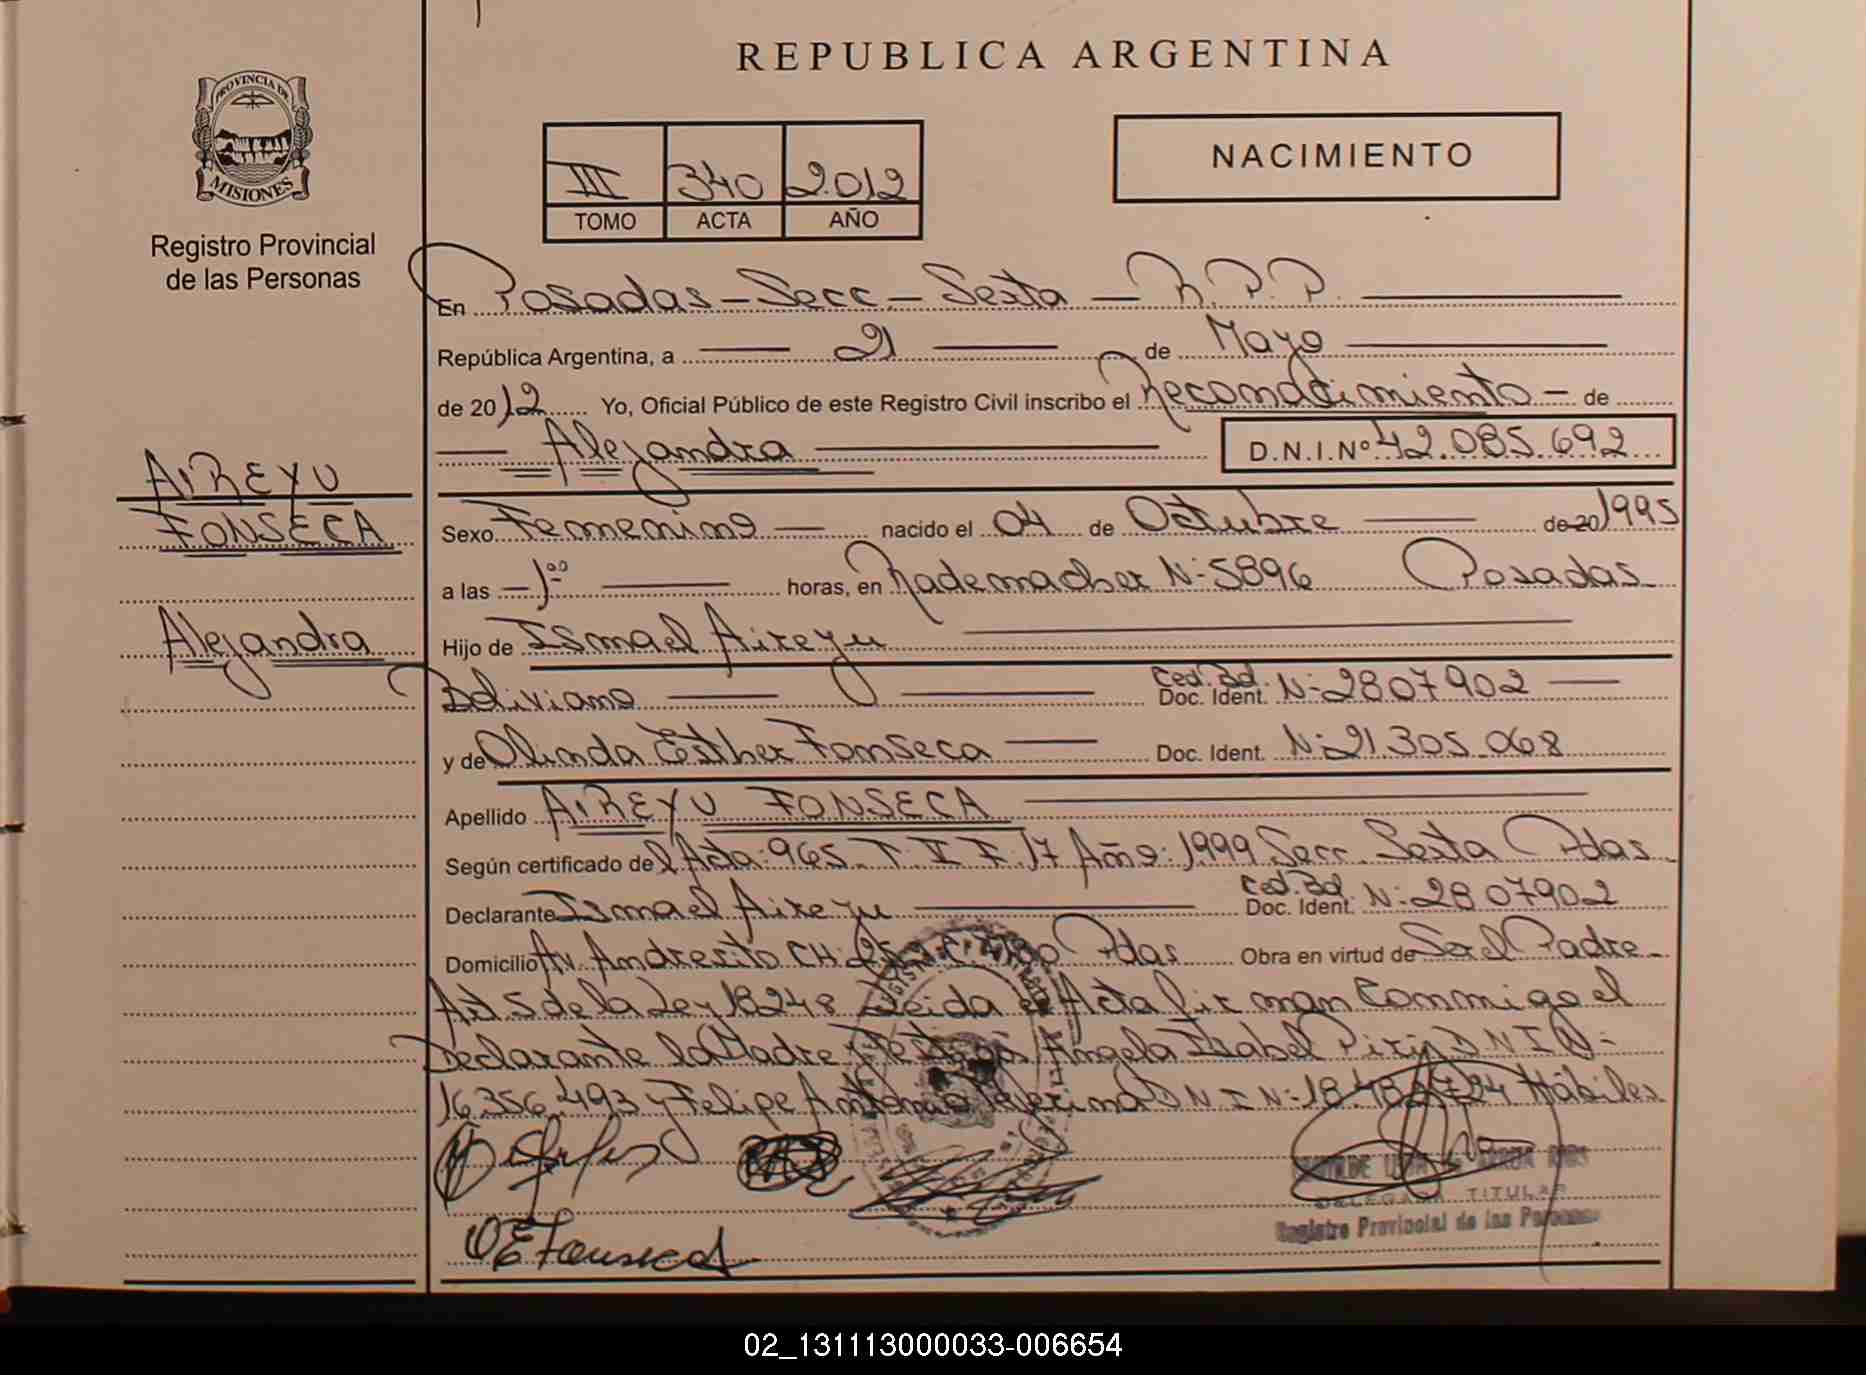 REPUBLICA ARGENTINA
PROVINCIA DE
MISIONES
Registro Provincial
de las Personas
III 340 2.012
TOMO ACTA AÑO
NACIMIENTO
En Posadas - Secc - Sexta - R.P.P.
República Argentina, a 21 de Mayo
de 2012 Yo, Oficial Público de este Registro Civil inscribo el Reconocimiento - de
Alejandra D.N.I.Nº 42.085.692
AIREYU
FONSECA
Alejandra
Sexo Femenino nacido el 04 de Octubre de 20 1995
a las 1ºº horas, en Rademacher N: 5896 Posadas
Hijo de Ismael Aireyu
Boliviano Ced. Bol. Doc. Ident. N: 2807902
y de Olinda Esther Fonseca Doc. Ident. N: 21.305.068
Apellido AIREYU FONSECA
Según certificado del Acta: 965 T II F 17 Año: 1999 Secc. Sexta Pdas
Declarante Ismael Aireyu Ced. Bol. Doc. Ident. N: 2807902
Domicilio Av. Andresito CH Pdas Obra en virtud de Ser el Padre
Art 5 de la Ley 18248 Leida el Acta firman Conmigo el
Declarante la Madre Testigos Angela Isabel DNI N:
16.356.493 y Felipe Antonio DNI N: Hábiles
OE Fonseca
DELEGADA TITULAR
Registro Provincial de las Personas
02_131113000033-006654